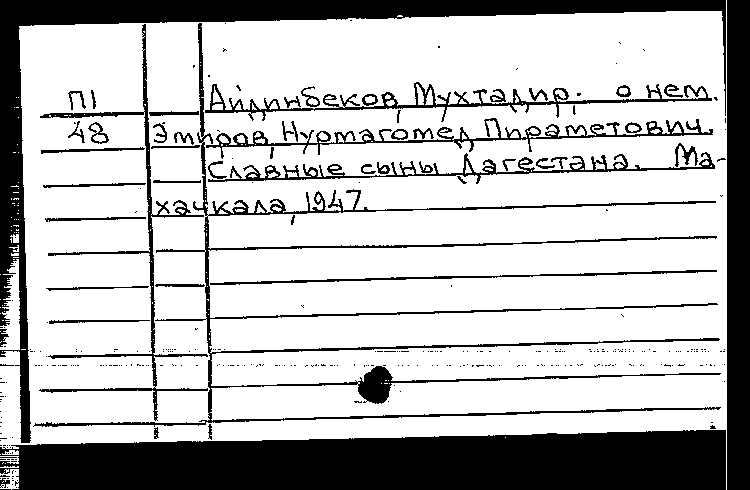 П1 Айдинбеков, Мухтадир. о нем.
48 Эмиров, Нурмагомед Пираметович.
Славные сыны Дагестана. Ма-
хачкала, 1947.